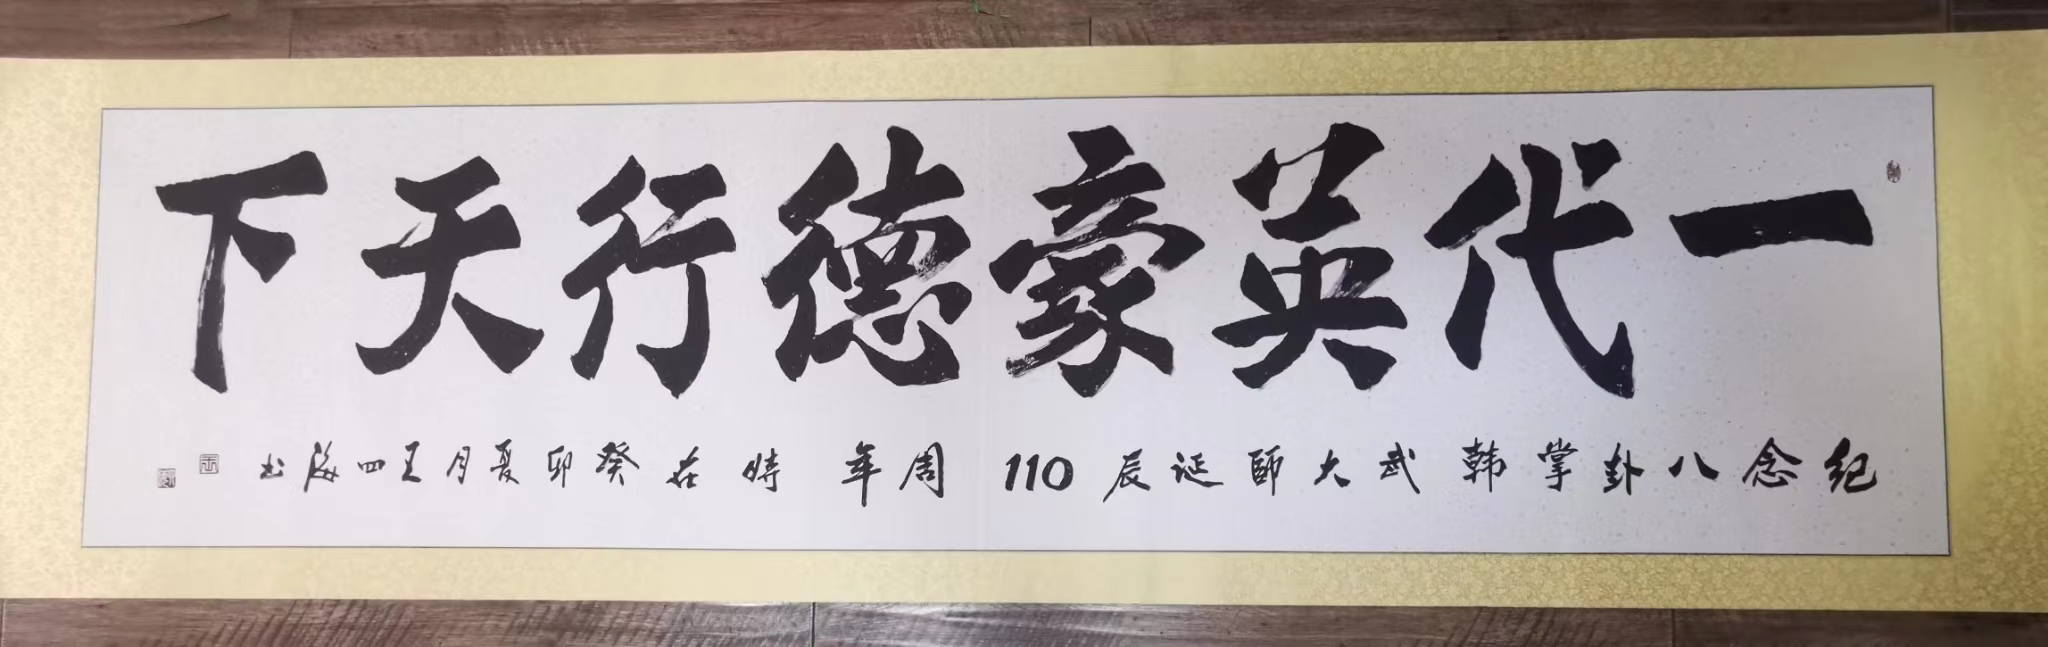 一代英豪德行天下
纪念八卦掌韩武大师诞辰110周年时在癸卯夏月王四海书